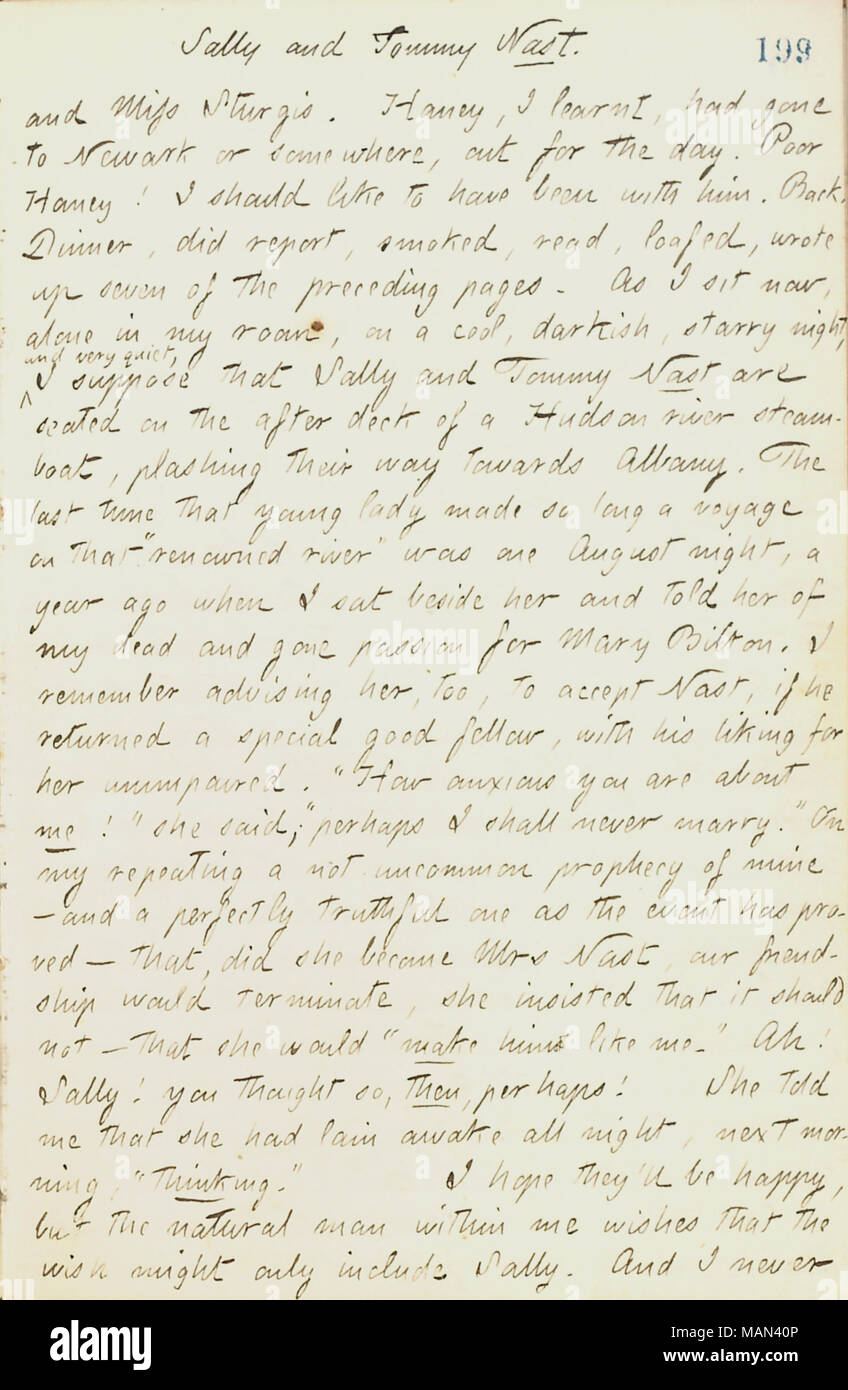 Sally and Tommy Nast.
199
and Miss Sturgis. Haney, I learnt, had gone
to Newark or somewhere, out for the day. Poor
Haney! I should like to have been with him. Back.
Dinner, did report, smoked, read, loafed, wrote
up seven of the preceding pages. As I sit now,
alone in my room, on a cool, darkish, starry night,
and very quiet,
^ I suppose that Sally and Tommy Nast are
seated on the after deck of a Hudson river steam-
boat, plashing their way towards Albany. The
last time that young lady made so long a voyage
on that "renowned river" was one August night, a
year ago when I sat beside her and told her of
my dead and gone passion for Mary Bilton. I
remember advising her, too, to accept Nast, if he
returned a special good fellow, with his liking for
her unimpaired. "How anxious you are about
me!" she said; "perhaps I shall never marry." On
my repeating a not uncommon prophecy of mine
—and a perfectly truthful one as the event has pro-
ved — that, did she become Mrs Nast, our friend-
ship would terminate, she insisted that it should
not — that she would "make him like me." Ah!
Sally! you thought so, then, perhaps! She told
me that she had lain awake all night, next mor-
ning, "thinking." I hope they'll be happy,
but the natural man within me wishes that the
wish might only include Sally. And I never
alamy
Image ID: MAN40P
www.alamy.com